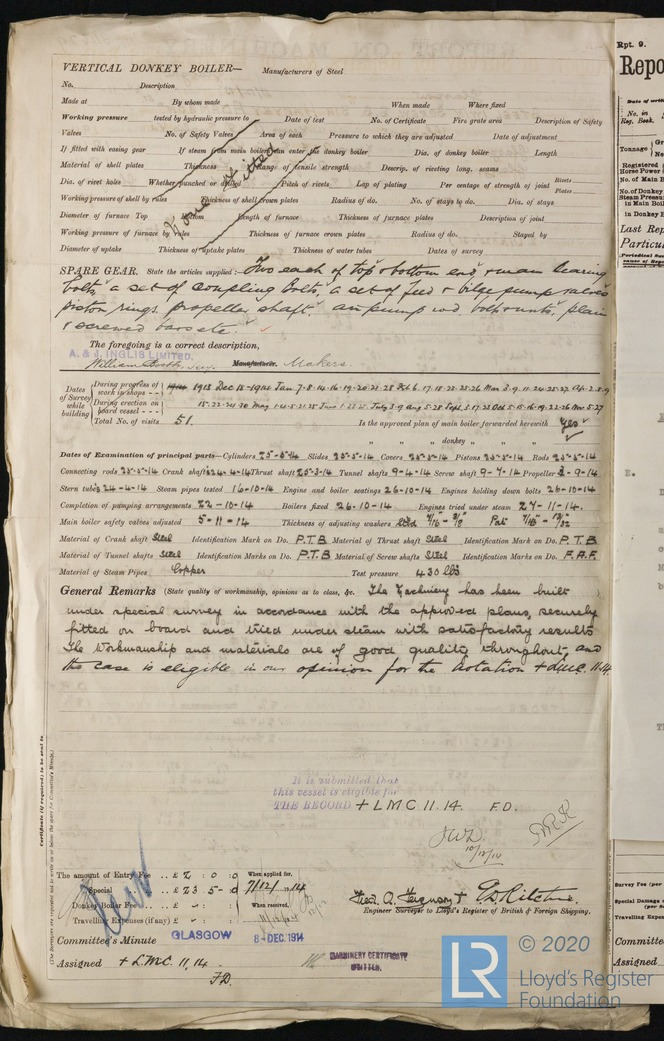 VERTICAL DONKEY BOILER— Manufacturers of Steel
No. Description
Made at By whom made When made Where fixed
Working pressure tested by hydraulic pressure to Date of test No. of Certificate Fire grate area Description of Safety
Valves No. of Safety Valves Area of each Pressure to which they are adjusted Date of adjustment
If fitted with easing gear If steam from main boilers can enter the donkey boiler Dia. of donkey boiler Length
Material of shell plates Thickness Range of tensile strength Descrip. of riveting long. seams
Dia. of rivet holes Whether punched or drilled Pitch of rivets Lap of plating Per centage of strength of joint Rivets Plates
Working pressure of shell by rules Thickness of shell crown plates Radius of do. No. of stays to do. Dia. of stays
Diameter of furnace Top Bottom Length of furnace Thickness of furnace plates Description of joint
Working pressure of furnace by rules Thickness of furnace crown plates Radius of do. Stayed by
Diameter of uptake Thickness of uptake plates Thickness of water tubes Dates of survey
None fitted
SPARE GEAR. State the articles supplied:— Two each of top & bottom end & main bearing
bolts, a set of coupling bolts, a set of feed & bilge pump valves
piston rings, propeller shaft. air pump rod bolts & nuts, plain
& screwed bars etc.
The foregoing is a correct description,
A. & J. INGLIS LIMITED.
William Booth, Manufacturer. Makers.
Dates of Survey while building
During progress of work in shops - - 1914 1913 Dec 18 - 1914 Jan 7-8-14-16-19-20-21-28 Feb 6. 17. 18. 22. 25. 26 Mar 3. 9. 11. 24. 25. 27. Apr 2. 8. 9
During erection on board vessel - - -
Total No. of visits 51. Is the approved plan of main boiler forwarded herewith Yes
" " " donkey " "
Dates of Examination of principal parts—Cylinders 25-3-14 Slides 25-3-14 Covers 25-3-14 Pistons 25-3-14 Rods 25-3-14
Connecting rods 25-3-14 Crank shaft 24-4-14 Thrust shaft 25-3-14 Tunnel shafts 9-4-14 Screw shaft 9-7-14 Propeller 2-9-14
Stern tube 24-4-14 Steam pipes tested 16-10-14 Engine and boiler seatings 26-10-14 Engines holding down bolts 26-10-14
Completion of pumping arrangements 22-10-14 Boilers fixed 26-10-14 Engines tried under steam 27-11-14.
Main boiler safety valves adjusted 5-11-14 Thickness of adjusting washers
Material of Crank shaft Steel Identification Mark on Do. P.T.B Material of Thrust shaft Steel Identification Mark on Do. P.T.B
Material of Tunnel shafts Steel Identification Marks on Do. P.T.B Material of Screw shafts Steel Identification Marks on Do. F.A.F.
Material of Steam Pipes Copper Test pressure 430 lbs
General Remarks (State quality of workmanship, opinions as to class, &c. The Machinery has been built
under special survey in accordance with the approved plans, securely
fitted on board and tried under steam with satisfactory results
The Workmanship and materials are of good quality throughout, and
the case is eligible in our opinion for the notation + LMC. 11.14.
Certificate (if required) to be sent to
It is submitted that
this vessel is eligible for
THE RECORD + LMC 11.14. F.D.
JWD.
10/12/14
The amount of Entry Fee .. £ 2 : 0 : 0 When applied for,
Special .. £ 23 5 - 0 7/12/ 1914
Donkey Boiler Fee .. £ When received,
Travelling Expenses (if any) £
Fred. A. Ferguson & G. Ritchie.
Engineer Surveyor to Lloyd's Register of British & Foreign Shipping.
Committee's Minute GLASGOW 8-DEC.1914
Assigned + L.M.C. 11,14.
F.D.
MACHINERY CERTIFICATE
WRITTEN.
Rpt. 9.
Repo
No. in
Reg. Book.
Tonnage
Registered
Horse Power
No. of Main B
No. of Donkey
Steam Pressure
in Main Boil
in Donkey
Last Rep
Particu
Survey Fee (per
Special Damage
Travelling Expen
Committe
Assigned
LR
© 2020
Lloyd's Register
Foundation